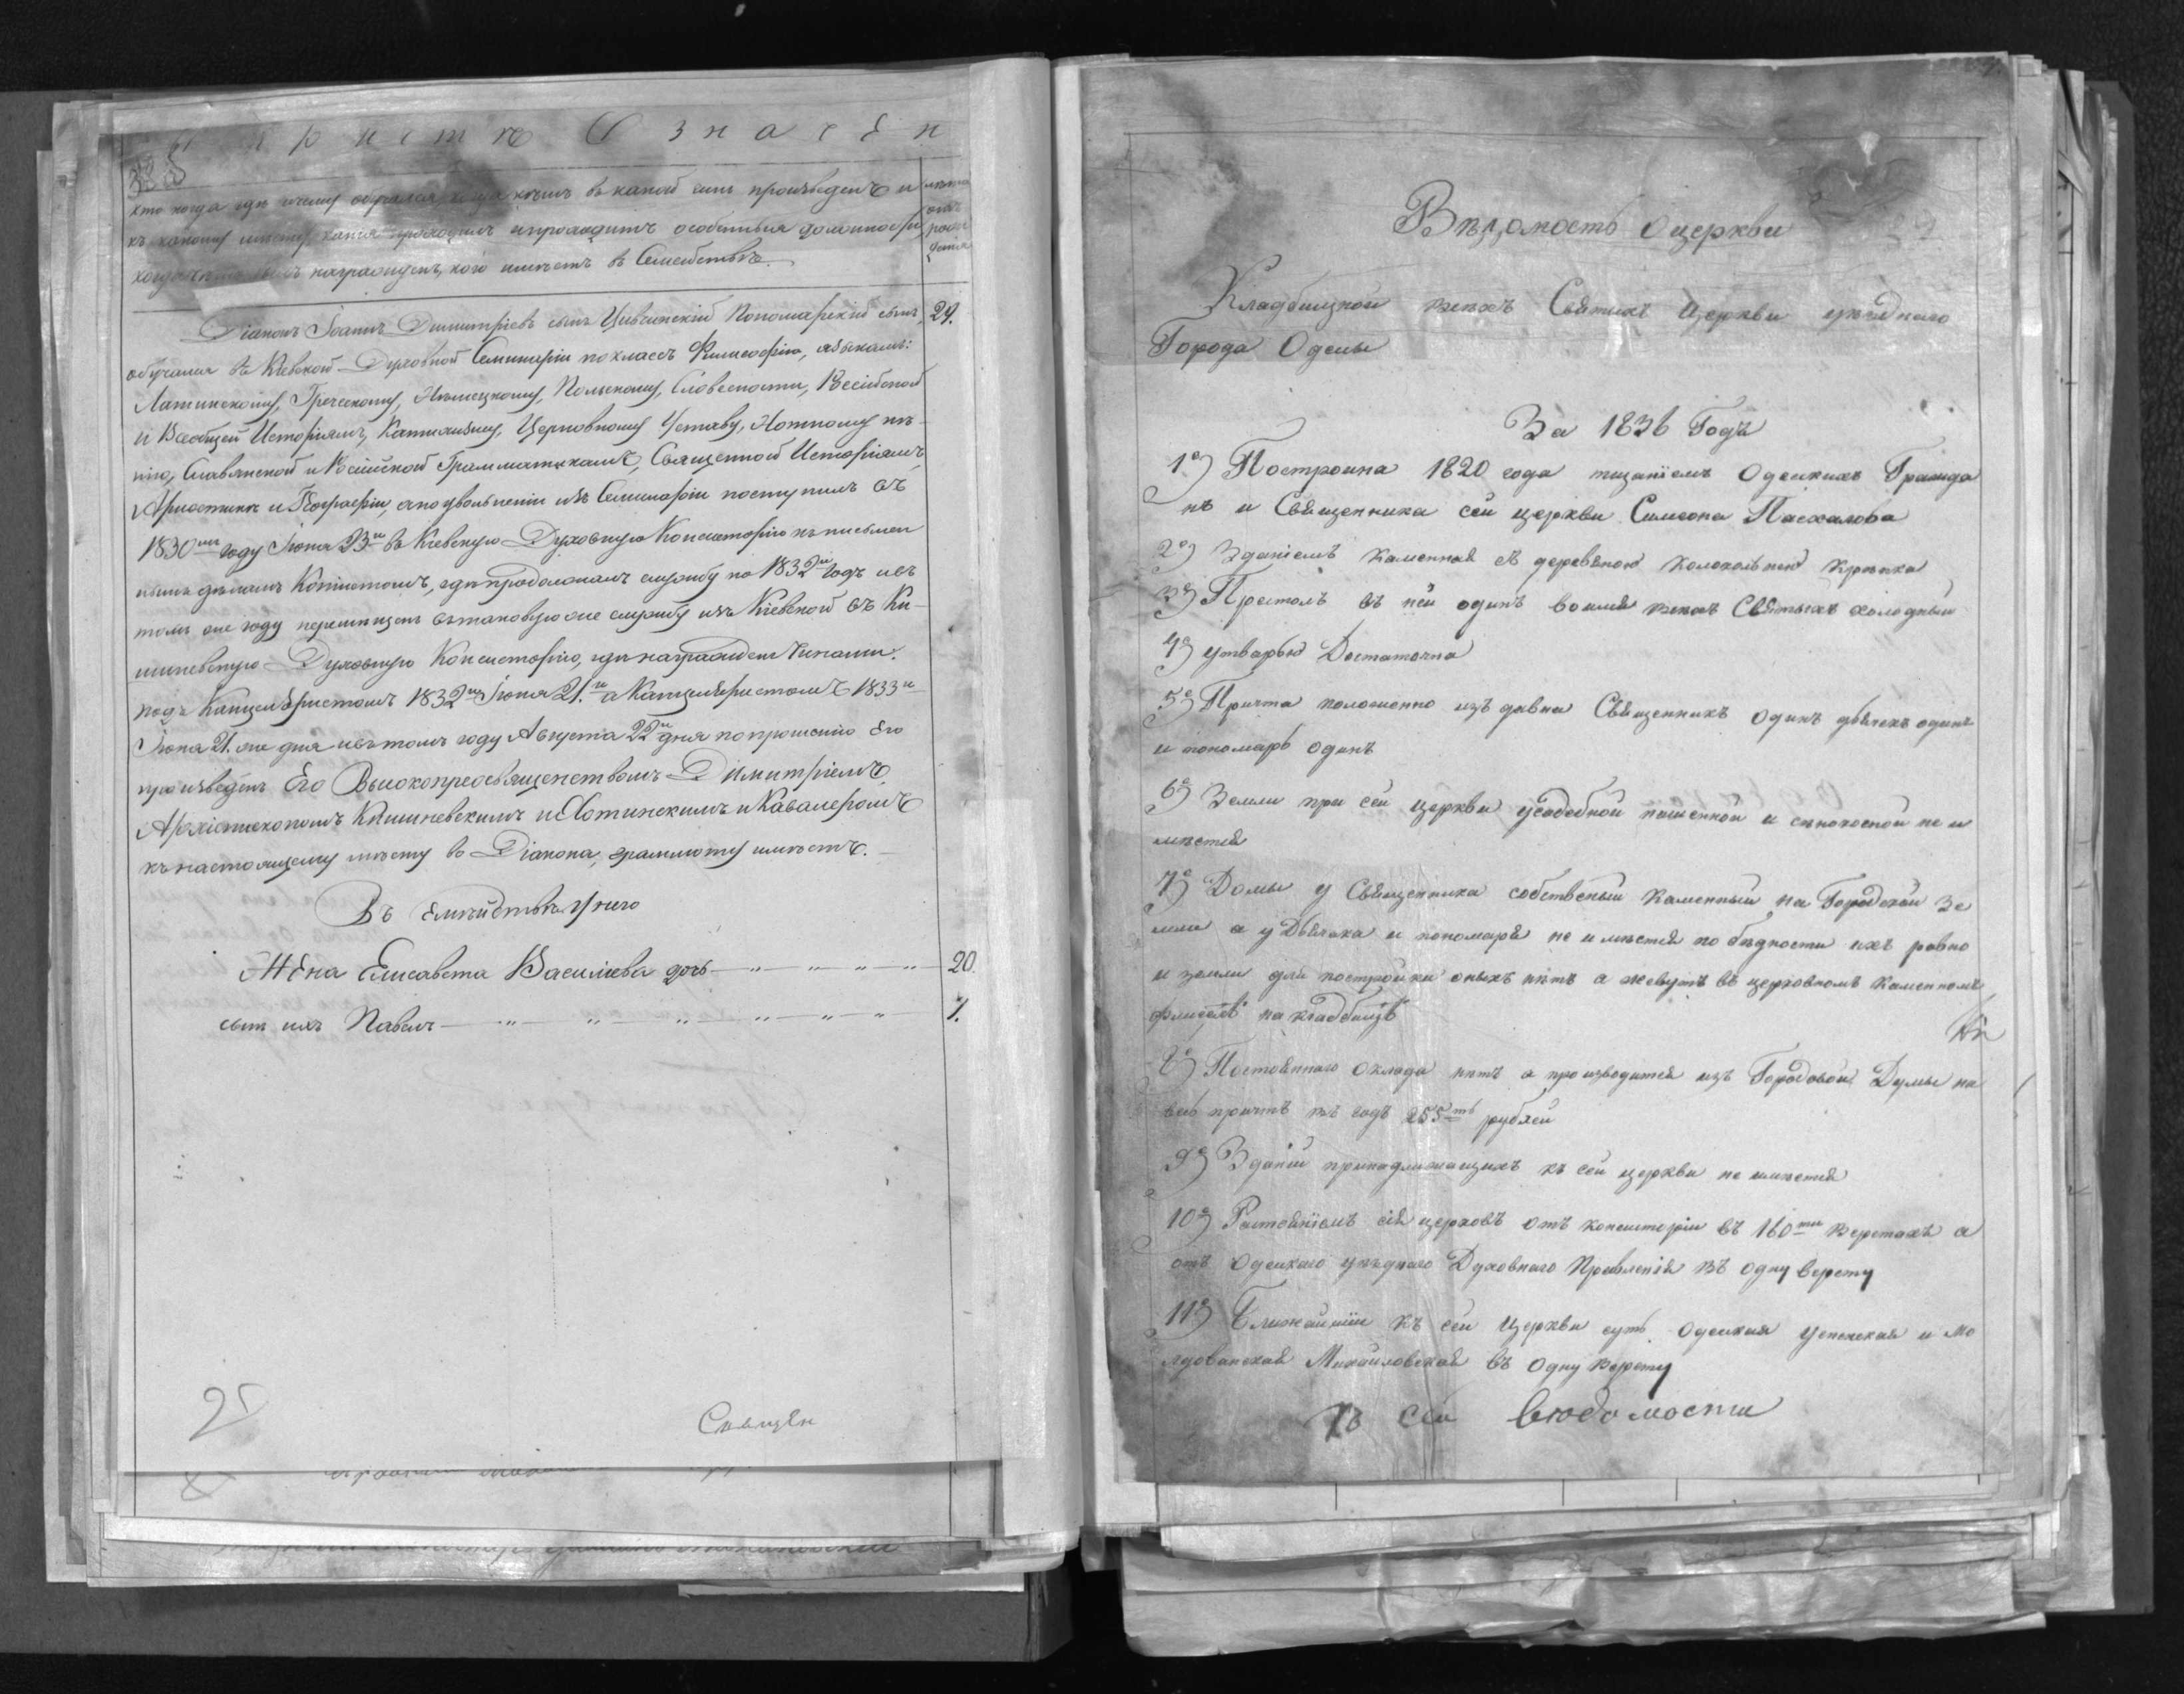 О причтѣ Означен
Кто когда гдѣ и чему обучался, когда кѣмъ въ какой чинъ произведенъ и
къ какому мѣсту, какія проходилъ и проходитъ особенныя должности
когда чѣмъ былъ награжденъ, кого имѣетъ въ Семействѣ.
лѣта
отъ
рож
денія
Діаконъ Іоаннъ Димитріевъ сынъ Пономарскій сынъ, 29.
обучался въ Кіевской Духовной Семинаріи по классъ Философіи, языкамъ:
Латинскому, Греческому, Нѣмецкому, Польскому, Словесности, Россійской
и Всеобщей Исторіямъ, Катихизису, Церковному Уставу, Нотному пѣ-
нію, Славянской и Россійской Грамматикамъ, Священной Исторіямъ,
Арифметикѣ и Географіи, а по увольненіи изъ Семинаріи поступилъ въ
1830мъ году Іюня 23го въ Кіевскую Духовную Консисторію къ письмен
нымъ дѣламъ Копіистомъ, гдѣ продолжалъ службу по 1832й годъ и въ
томъ же году перемѣщенъ въ таковую же службу изъ Кіевской въ Ки-
шиневскую Духовную Консисторію, гдѣ награжденъ Чинами:
подъ Канцеляристомъ 1832го Іюня 21го а Канцеляристомъ 1833го
Іюня 21. же дня и въ томъ году Августа 22го дня по прошенію Его
произведенъ Его Высокопреосвященствомъ Димитріемъ,
Архіепископомъ Кишиневскимъ и Хотинскимъ и Кавалеромъ
къ настоящему мѣсту во Діакона, граммоту имѣетъ.
Въ Семействѣ у него
Жена Елисавета Василіева дочь 20.
сынъ ихъ Павелъ 1.
25
Священ
Вѣдомость о церкви
Кладбищной всѣхъ Святыхъ Церкви уѣзднаго
Города Одессы
За 1836 Годъ
1е) Построина 1820 года тщаніемъ Одесскихъ Гражда
нъ и Священника сей церкви Симеона Пасхалова
2е) Зданіемъ каменная съ деревяною колокольнею крѣпка
3е) Престолъ въ ней одинъ во имя всѣхъ Святыхъ холодный
4е) утварью Достаточна
5е) Причта положенно изъ давна Священникъ одинъ дьячекъ одинъ
и пономарь одинъ
6е) Земли при сей церкви усадебной пашенной и сѣнокосной не и
мѣется
7е) Домы у Священника собственый каменный на Городской зе
мли а у Дьячака и пономаря не имѣется по бѣдности ихъ равно
и земли для постройки оныхъ нѣтъ а живутъ въ церковномъ каменномъ
флигелѣ на кладбищѣ
8е) Постояннаго оклада нѣтъ а производится изъ Городовой Думы на
весь причтъ въ годъ 255ть рублей
9е) Зданій принадлежащихъ къ сей церкви не имѣется
10е) Растояніемъ сія церковъ отъ консисторіи въ 160ти верстахъ а
отъ Одесскаго уѣзднаго Духовнаго Правленія въ одну версту
11е) Ближайшіи къ сей Церкви суть Одесская Успенская и Мо
лдованская Михайловская въ одну версту
Къ сей вѣдомости